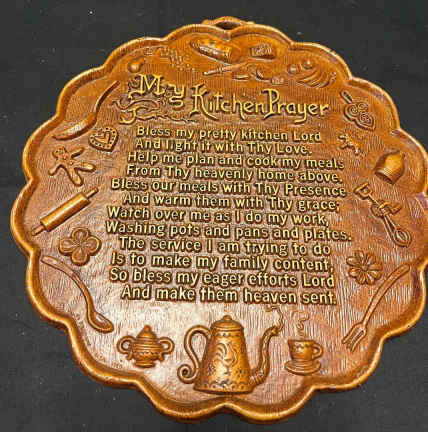 My Kitchen Prayer
Bless my pretty kitchen Lord
And light it with Thy Love.
Help me plan and cook my meals
From Thy heavenly home above.
Bless our meals with Thy Presence
And warm them with Thy grace;
Watch over me as I do my work,
Washing pots and pans and plates.
The service I am trying to do
Is to make my family content,
So bless my eager efforts Lord
And make them heaven sent.